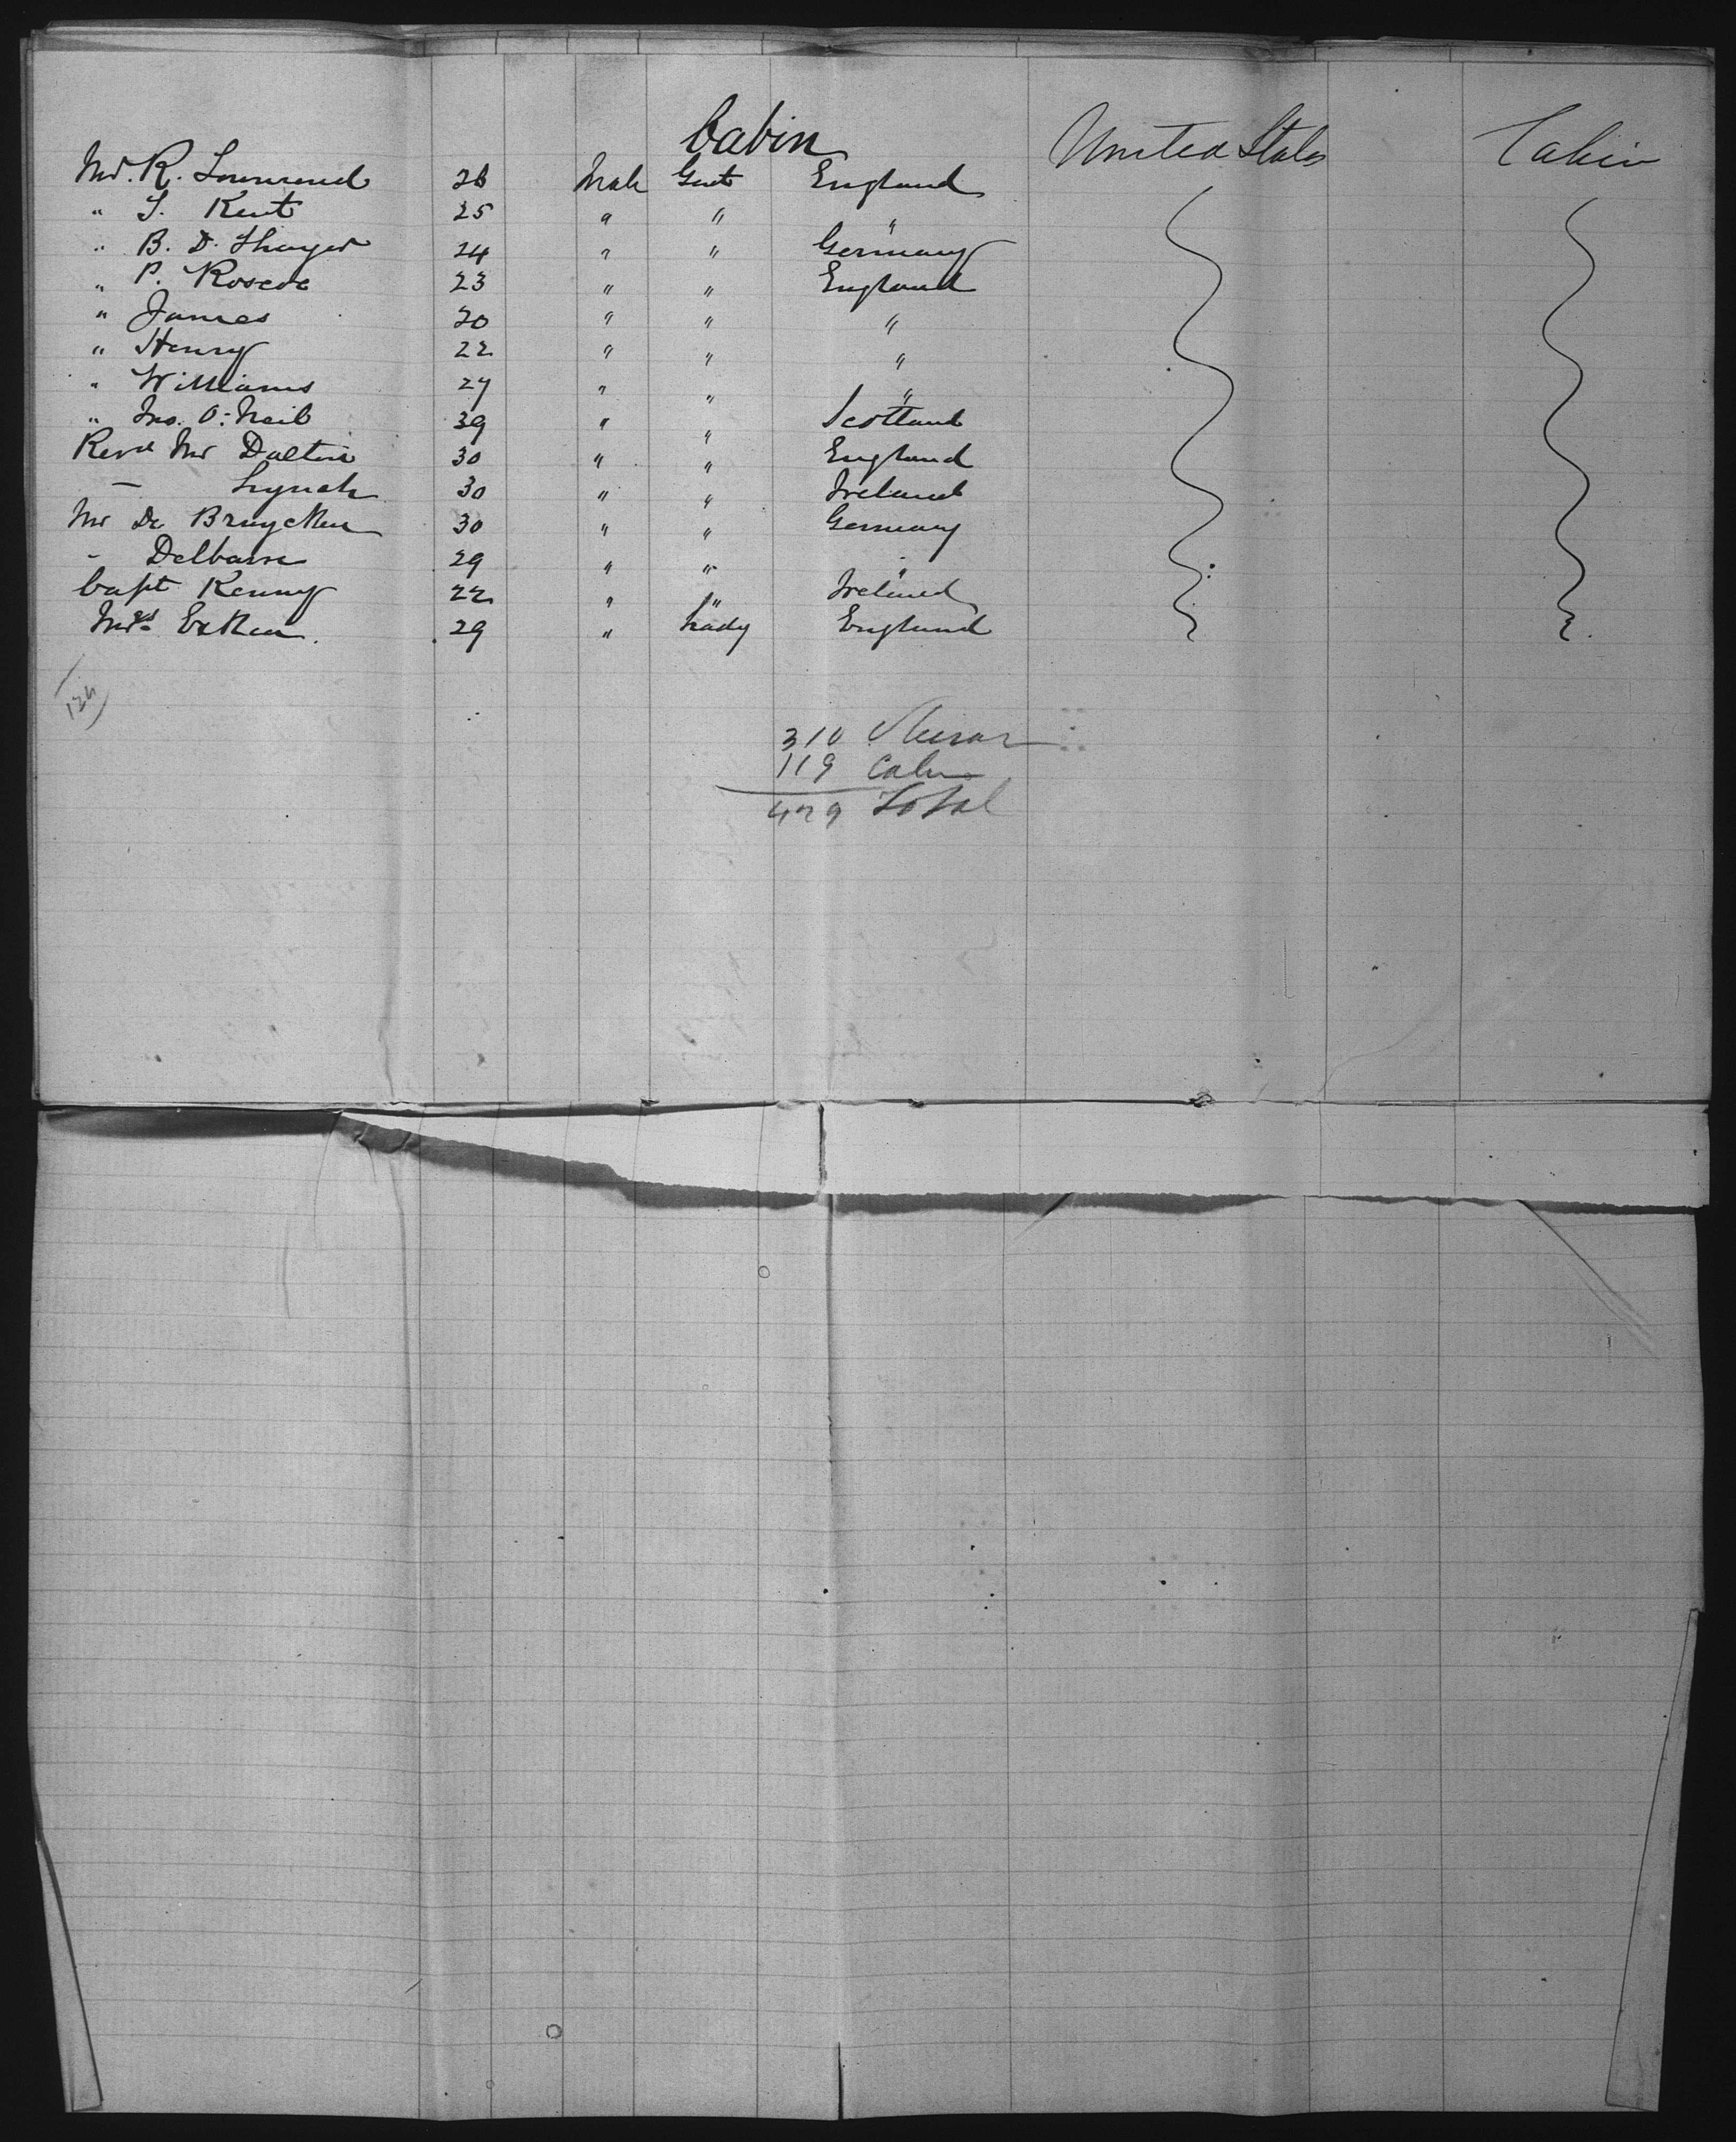 Cabin United States Cabin
Mr. R. Townsend 26 Male Gent England
" S. Kent 25 " " "
" B. D. Thayer 24 " " Germany
" P. Roscoe 23 " " England
" James 20 " " "
" Henry 22 " " "
" Williams 27 " " "
" Jno. O'Neil 39 " " Scotland
Revd Mr Dalton 30 " " England
— Lynch 30 " " Ireland
Mr De Bruycker 30 " " Germany
" Delbarre 29 " " "
Capt Kenny 22 " " Ireland
Mrs 29 " Lady England
124
310
119 Cabin
429 Total